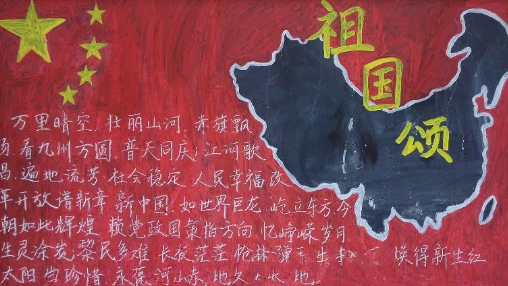 祖国颂
万里晴空,壮丽山河,赤旗飘
扬,看九州方圆,普天同庆;江河歌
唱,遍地流芳,社会稳定 人民幸福 改
革开放谱新章 新中国,如世界巨龙,屹立东方 今
朝如此辉煌 赖党政国策怕方向,忆峥嵘岁月,
生灵涂炭,黎民多难 长夜茫茫 枪林弹雨 生 唤得新生红
太阳当珍惜,永葆河山 地久天长 地